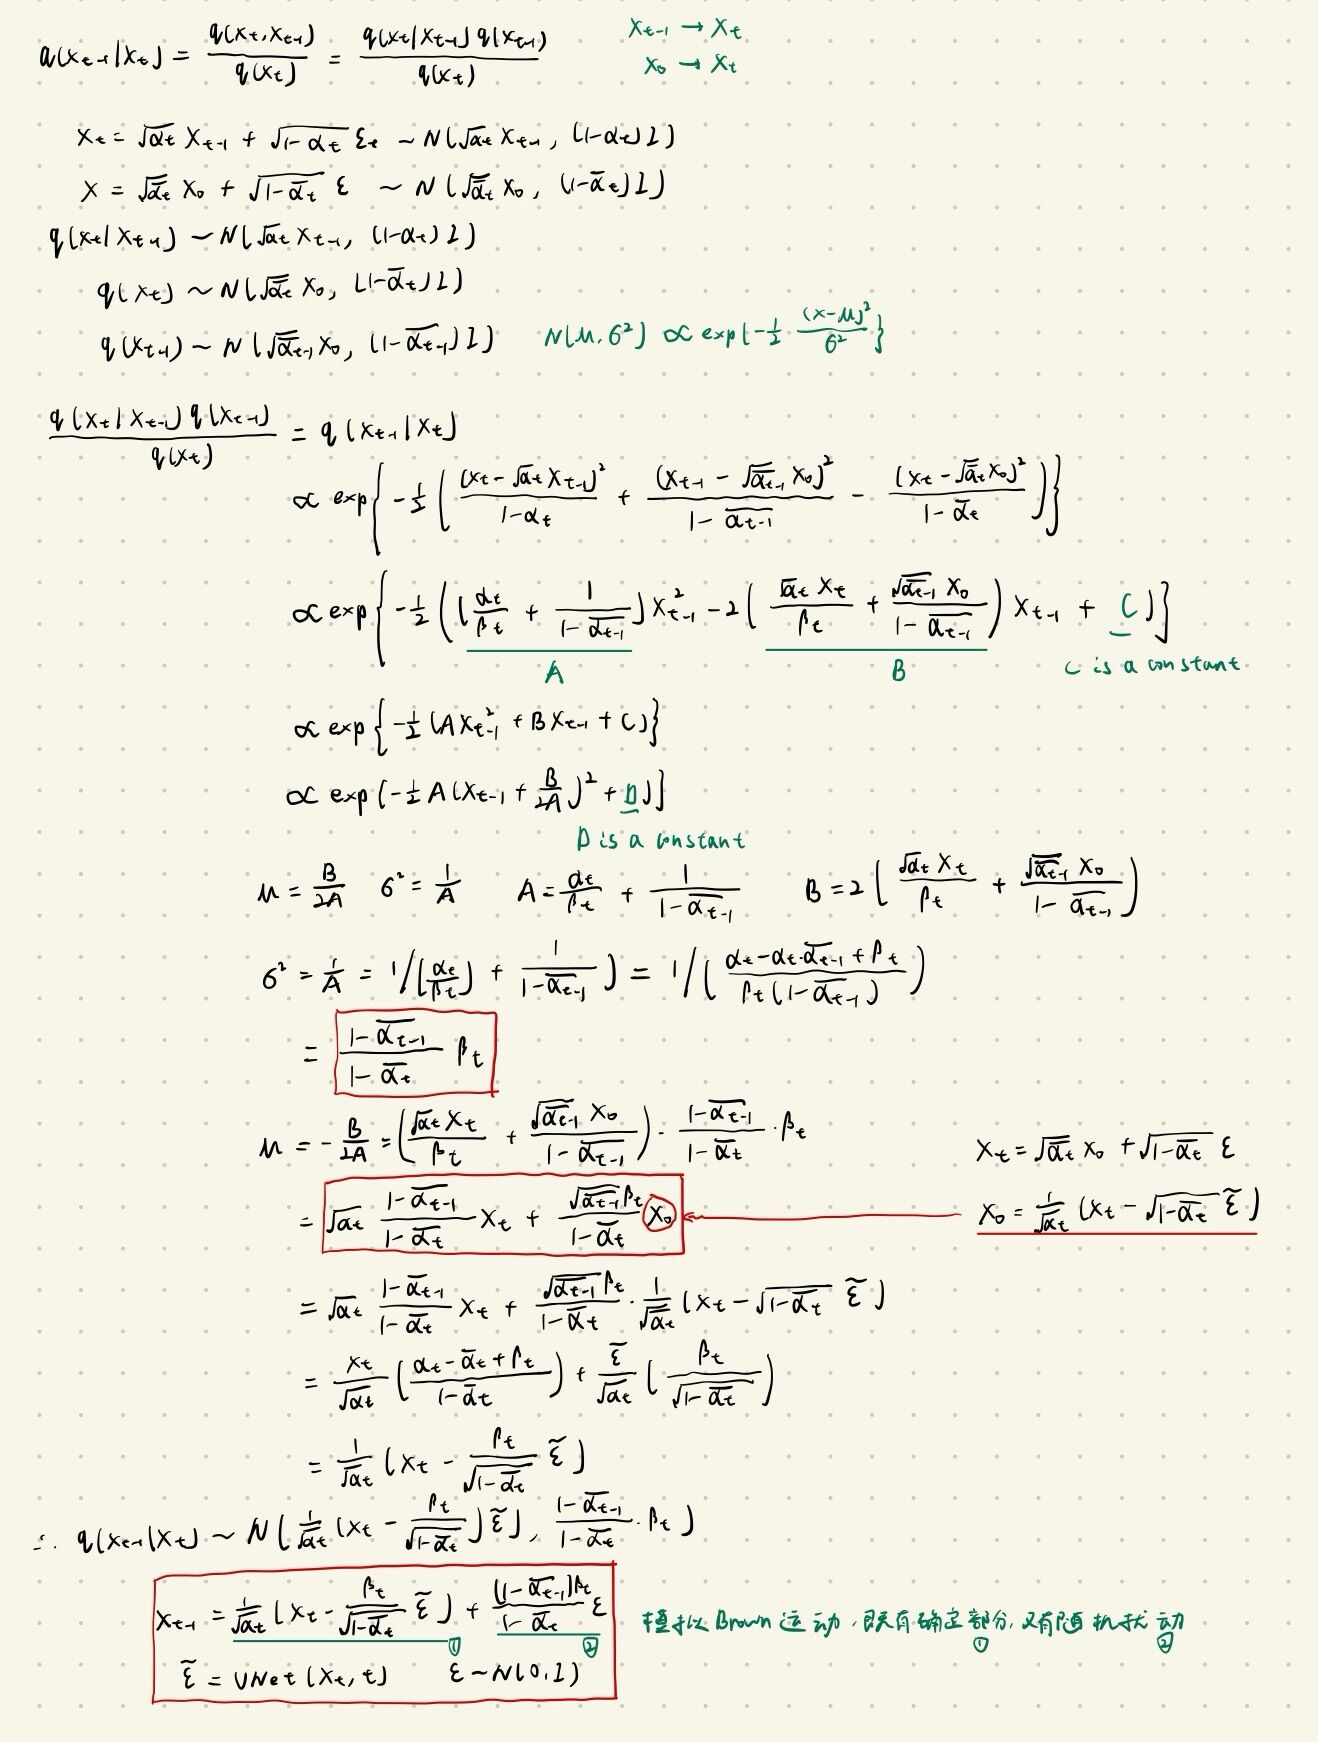 q(x_{t-1}|x_t) = \frac{q(x_t, x_{t-1})}{q(x_t)} = \frac{q(x_t|x_{t-1}) q(x_{t-1})}{q(x_t)}
x_{t-1} → x_t
x_0 → x_t
x_t = √α_t x_{t-1} + √(1-α_t) ε_t ~ N(√α_t x_{t-1}, (1-α_t)I)
x = √ᾱ_t x_0 + √(1-ᾱ_t) ε ~ N(√ᾱ_t x_0, (1-ᾱ_t)I)
q(x_t|x_{t-1}) ~ N(√α_t x_{t-1}, (1-α_t)I)
q(x_t) ~ N(√ᾱ_t x_0, (1-ᾱ_t)I)
q(x_{t-1}) ~ N(√ᾱ_{t-1} x_0, (1-ᾱ_{t-1})I) N(μ, σ²) ∝ exp{-\frac{1}{2} \frac{(x-μ)²}{σ²}}
\frac{q(x_t|x_{t-1}) q(x_{t-1})}{q(x_t)} = q(x_{t-1}|x_t)
∝ exp{-\frac{1}{2}(\frac{(x_t-√α_t x_{t-1})²}{1-α_t} + \frac{(x_{t-1}-√ᾱ_{t-1} x_0)²}{1-ᾱ_{t-1}} - \frac{(x_t-√ᾱ_t x_0)²}{1-ᾱ_t})}
∝ exp{-\frac{1}{2}((\frac{α_t}{β_t} + \frac{1}{1-ᾱ_{t-1}}) x_{t-1}² - 2(\frac{√α_t x_t}{β_t} + \frac{√ᾱ_{t-1} x_0}{1-ᾱ_{t-1}}) x_{t-1} + C)}
A B C is a constant
∝ exp{-\frac{1}{2}(A x_{t-1}² + B x_{t-1} + C)}
∝ exp{-\frac{1}{2} A(x_{t-1} + \frac{B}{2A})² + D)}
D is a constant
μ = \frac{B}{2A} σ² = \frac{1}{A} A = \frac{α_t}{β_t} + \frac{1}{1-ᾱ_{t-1}} B = 2(\frac{√α_t x_t}{β_t} + \frac{√ᾱ_{t-1} x_0}{1-ᾱ_{t-1}})
σ² = \frac{1}{A} = 1/((\frac{α_t}{β_t}) + \frac{1}{1-ᾱ_{t-1}}) = 1/(\frac{α_t-α_t·ᾱ_{t-1}+β_t}{β_t(1-ᾱ_{t-1})})
= \frac{1-ᾱ_{t-1}}{1-ᾱ_t} β_t
μ = -\frac{B}{2A} = (\frac{√α_t x_t}{β_t} + \frac{√ᾱ_{t-1} x_0}{1-ᾱ_{t-1}}) · \frac{1-ᾱ_{t-1}}{1-ᾱ_t} · β_t
x_t = √ᾱ_t x_0 + √(1-ᾱ_t) ε
= √α_t \frac{1-ᾱ_{t-1}}{1-ᾱ_t} x_t + \frac{√ᾱ_{t-1} β_t}{1-ᾱ_t} x_0
x_0 = \frac{1}{√ᾱ_t}(x_t - √(1-ᾱ_t) ε̃)
= √α_t \frac{1-ᾱ_{t-1}}{1-ᾱ_t} x_t + \frac{√ᾱ_{t-1} β_t}{1-ᾱ_t} · \frac{1}{√ᾱ_t}(x_t - √(1-ᾱ_t) ε̃)
= \frac{x_t}{√α_t}(\frac{α_t-ᾱ_t+β_t}{1-ᾱ_t}) + \frac{ε̃}{√α_t}(\frac{β_t}{√(1-ᾱ_t)})
= \frac{1}{√α_t}(x_t - \frac{β_t}{√(1-ᾱ_t)} ε̃)
∴ q(x_{t-1}|x_t) ~ N(\frac{1}{√α_t}(x_t - \frac{β_t}{√(1-ᾱ_t)}) ε̃), \frac{1-ᾱ_{t-1}}{1-ᾱ_t} · β_t)
x_{t-1} = \frac{1}{√α_t}(x_t - \frac{β_t}{√(1-ᾱ_t)} ε̃) + \frac{(1-ᾱ_{t-1})β_t}{1-ᾱ_t} ε
① ②
模拟Brown运动,既有确定部分,又有随机扰动
① ②
ε̃ = UNet(x_t, t) ε ~ N(0, I)